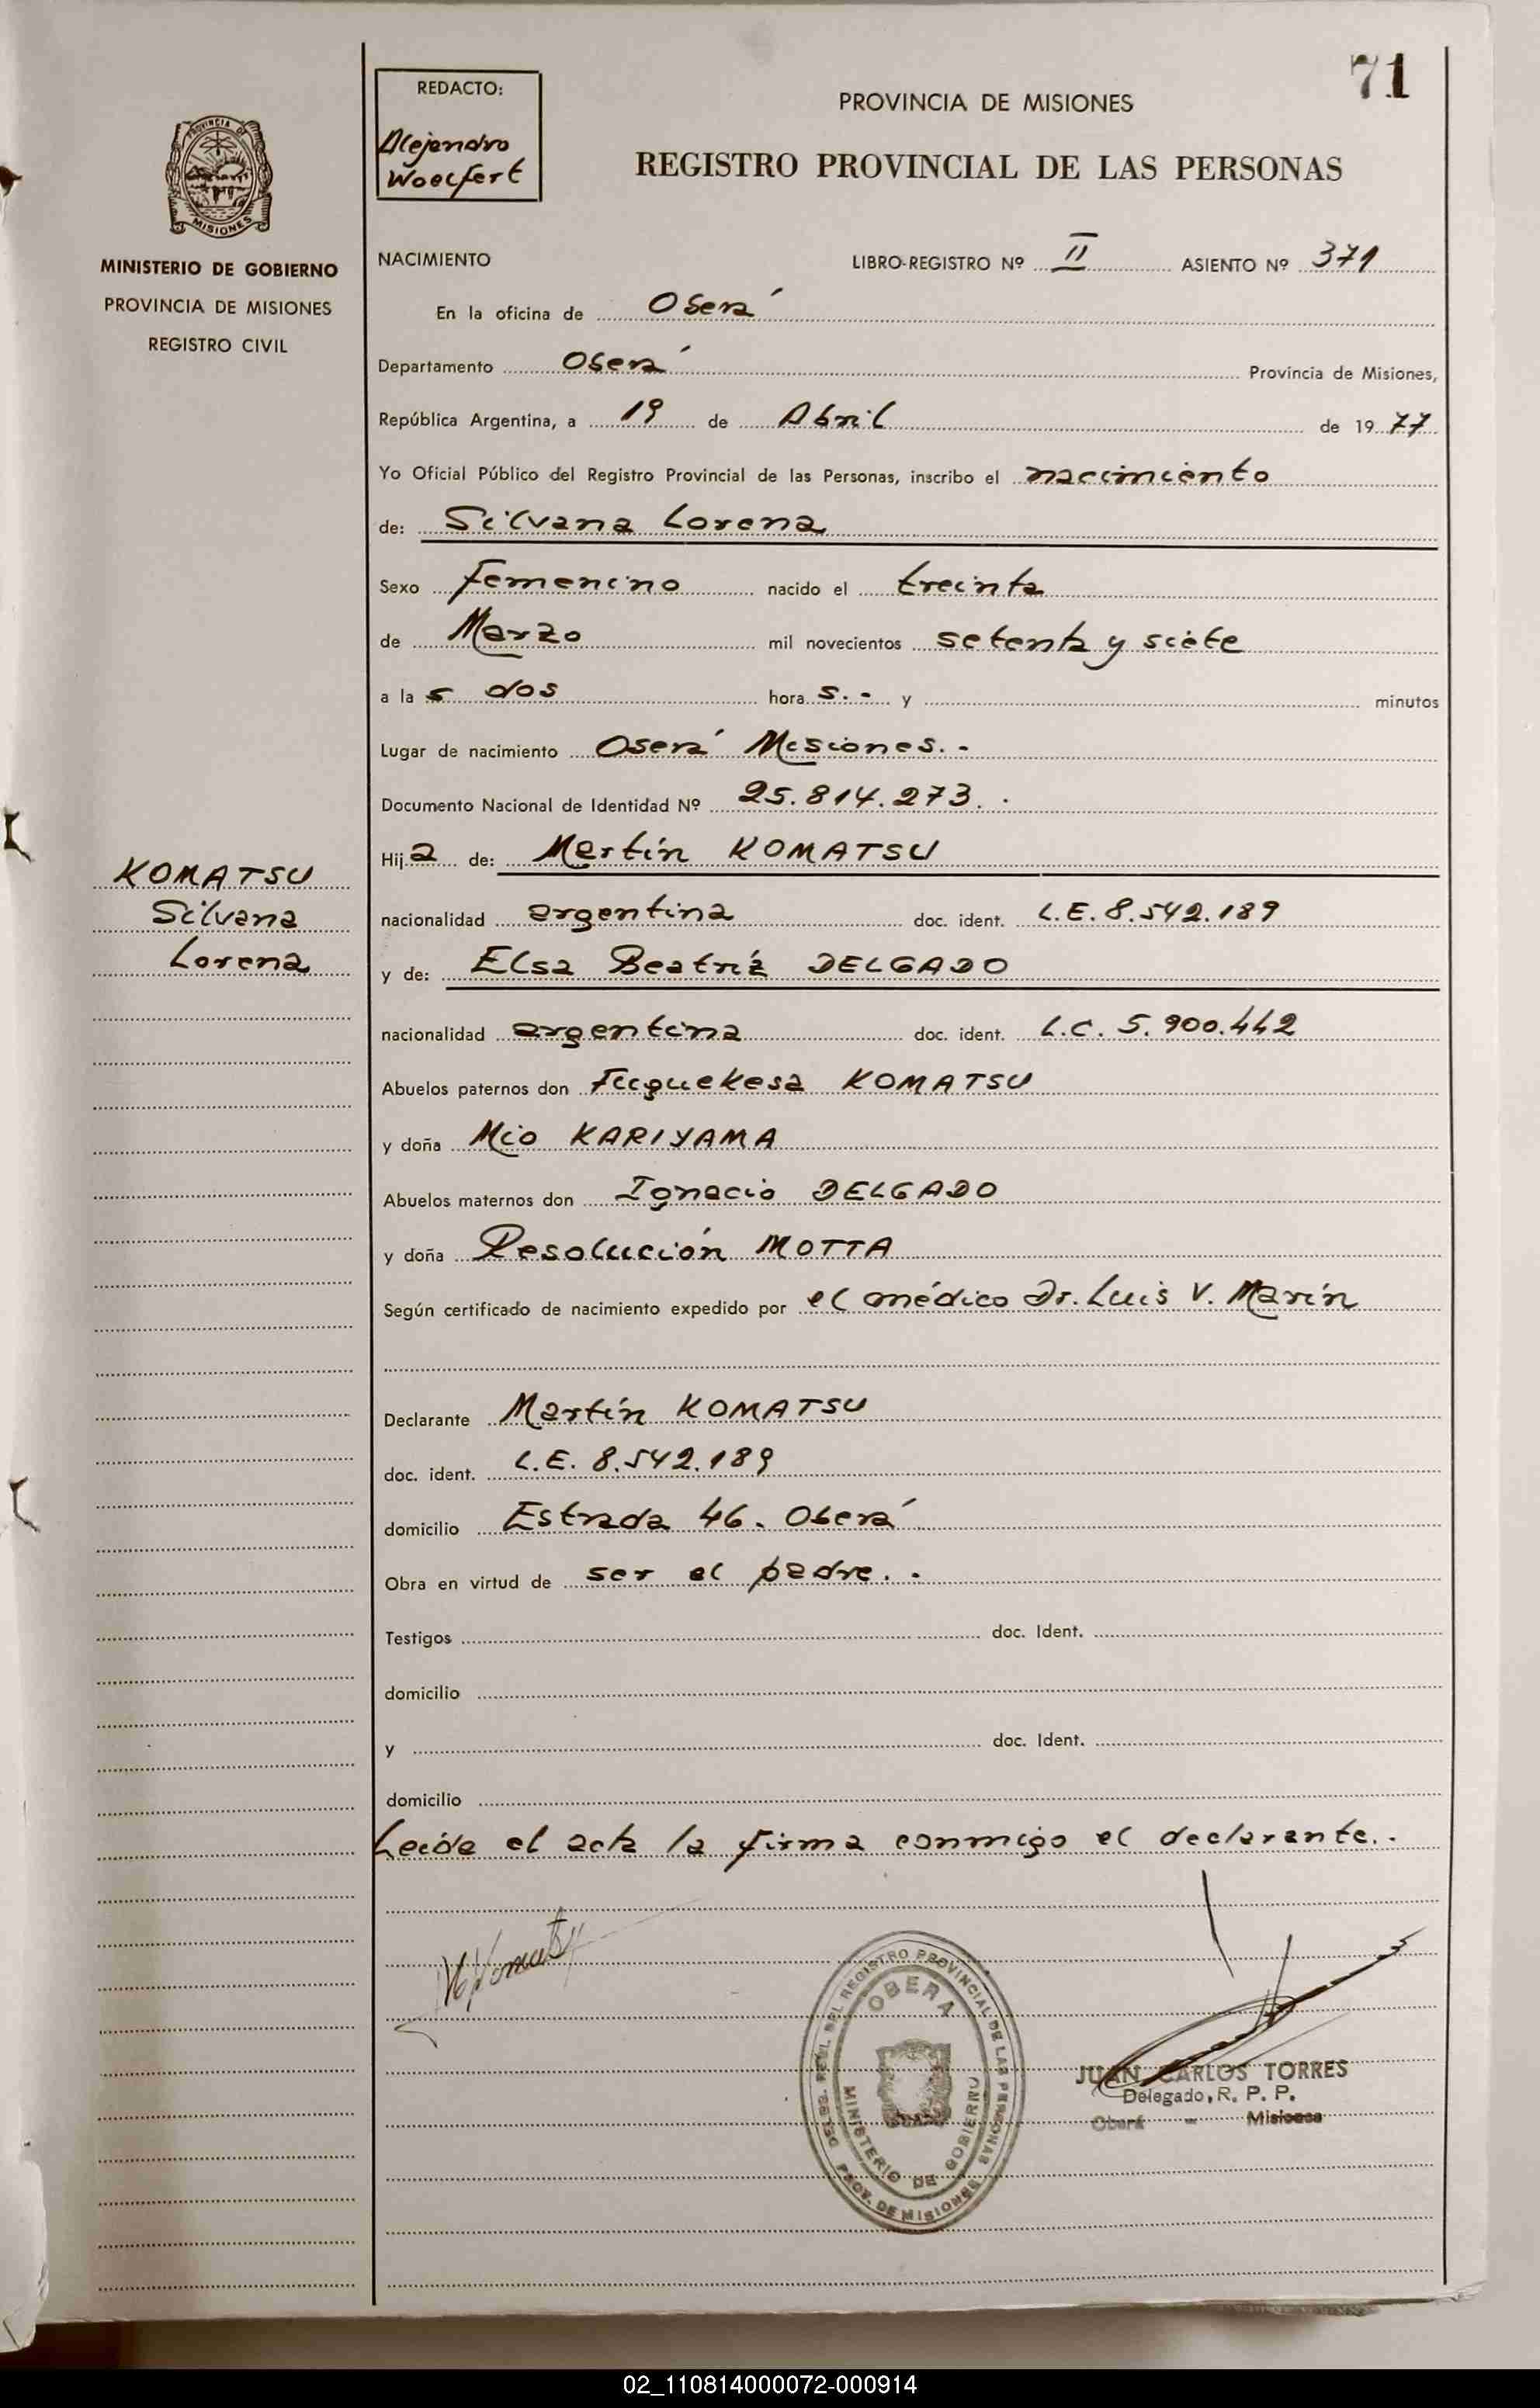 71
REDACTO:
Alejandro
Woelfert
PROVINCIA DE MISIONES
REGISTRO PROVINCIAL DE LAS PERSONAS
PROVINCIA DE
MISIONES
MINISTERIO DE GOBIERNO
PROVINCIA DE MISIONES
REGISTRO CIVIL
NACIMIENTO LIBRO-REGISTRO Nº II ASIENTO Nº 371
En la oficina de Oberá
Departamento Oberá Provincia de Misiones,
República Argentina, a 19 de Abril de 1977
Yo Oficial Público del Registro Provincial de las Personas, inscribo el nacimiento
de: Silvana Lorena
Sexo Femenino nacido el treinta
de Marzo mil novecientos setenta y siete
a las dos horas.- y minutos
Lugar de nacimiento Oberá Misiones.-
Documento Nacional de Identidad Nº 25.814.273.-
Hija de: Martín KOMATSU
KOMATSU
Silvana
Lorena
nacionalidad argentina doc. ident. L.E. 8.542.189
y de: Elsa Beatríz DELGADO
nacionalidad argentina doc. ident. L.C. 5.900.442
Abuelos paternos don KOMATSU
y doña Mio KARIYAMA
Abuelos maternos don Ignacio DELGADO
y doña Resolución MOTTA
Según certificado de nacimiento expedido por el médico Dr. Luis V. Marín
Declarante Martín KOMATSU
doc. ident. L.E. 8.542.189
domicilio Estrada 46. Oberá
Obra en virtud de ser el padre.-
Testigos doc. Ident.
domicilio
y doc. Ident.
domicilio
Leída el acta la firma conmigo el declarante.-
OBERA
MINISTERIO DE GOBIERNO
REGISTRO PROVINCIAL DE LAS PERSONAS
PROV. DE MISIONES
JUAN CARLOS TORRES
Delegado, R. P. P.
Oberá - Misiones
02_110814000072-000914